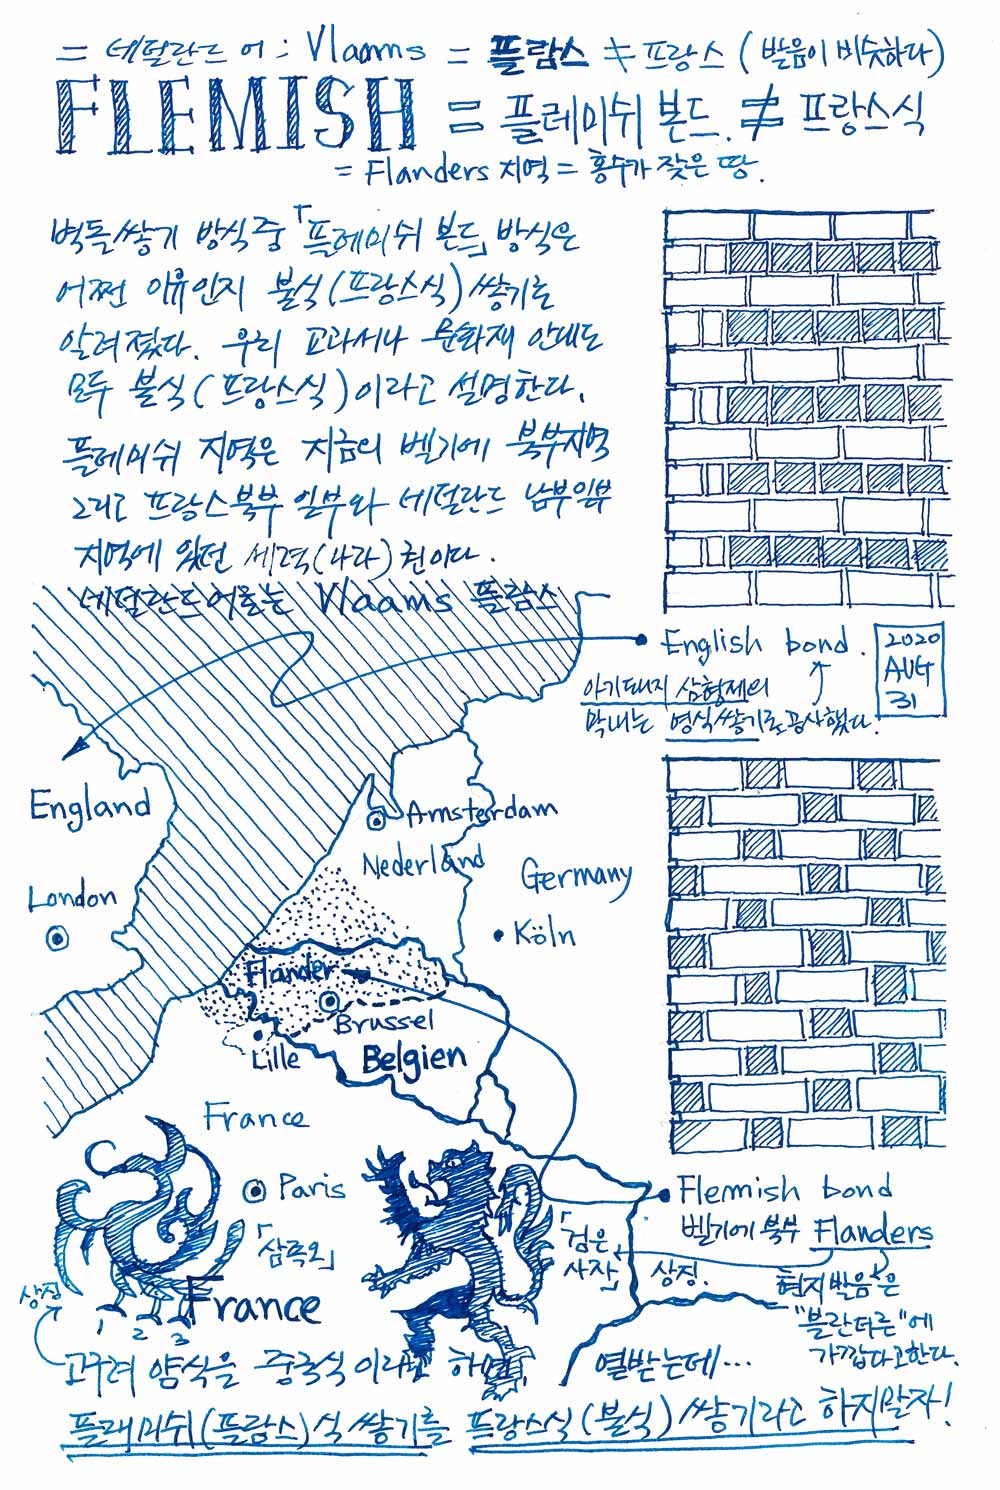 = 네덜란드 어 : Vlaams = 플람스 ≠ 프랑스 (발음이 비슷하다)
FLEMISH = 플레미쉬 본드. ≠ 프랑스식
= Flanders 지역 = 홍수가 잦은 땅.
벽돌쌓기 방식중 「플레미쉬 본드」 방식은
어쩐 이유인지 불식(프랑스식) 쌓기로
알려졌다. 우리 교과서나 문화재 안내도
모두 불식(프랑스식)이라고 설명한다.
플레미쉬 지역은 지금의 벨기에 북부지역
그리고 프랑스북부 일부와 네덜란드 남부일부
지역에 있던 세력(나라)권이다.
네덜란드어로는 Vlaams 플람스
English bond.
2020
AUG
31
아기돼지 삼형제의
막내는 영식쌓기로 공사했다.
England
Amsterdam
Nederland
Germany
London
Köln
Flander
Brussel
Lille
Belgien
France
Paris
Flemish bond
벨기에 북부 Flanders
「삼족오」
「검은
사자」
상징.
현지 발음은
"블란더른"에
가깝다고한다.
상징
France
1 2 3
고구려 양식을 중국식이라고 하면 열받는데...
플래미쉬(플람스)식 쌓기를 프랑스식(불식) 쌓기라고 하지말자!